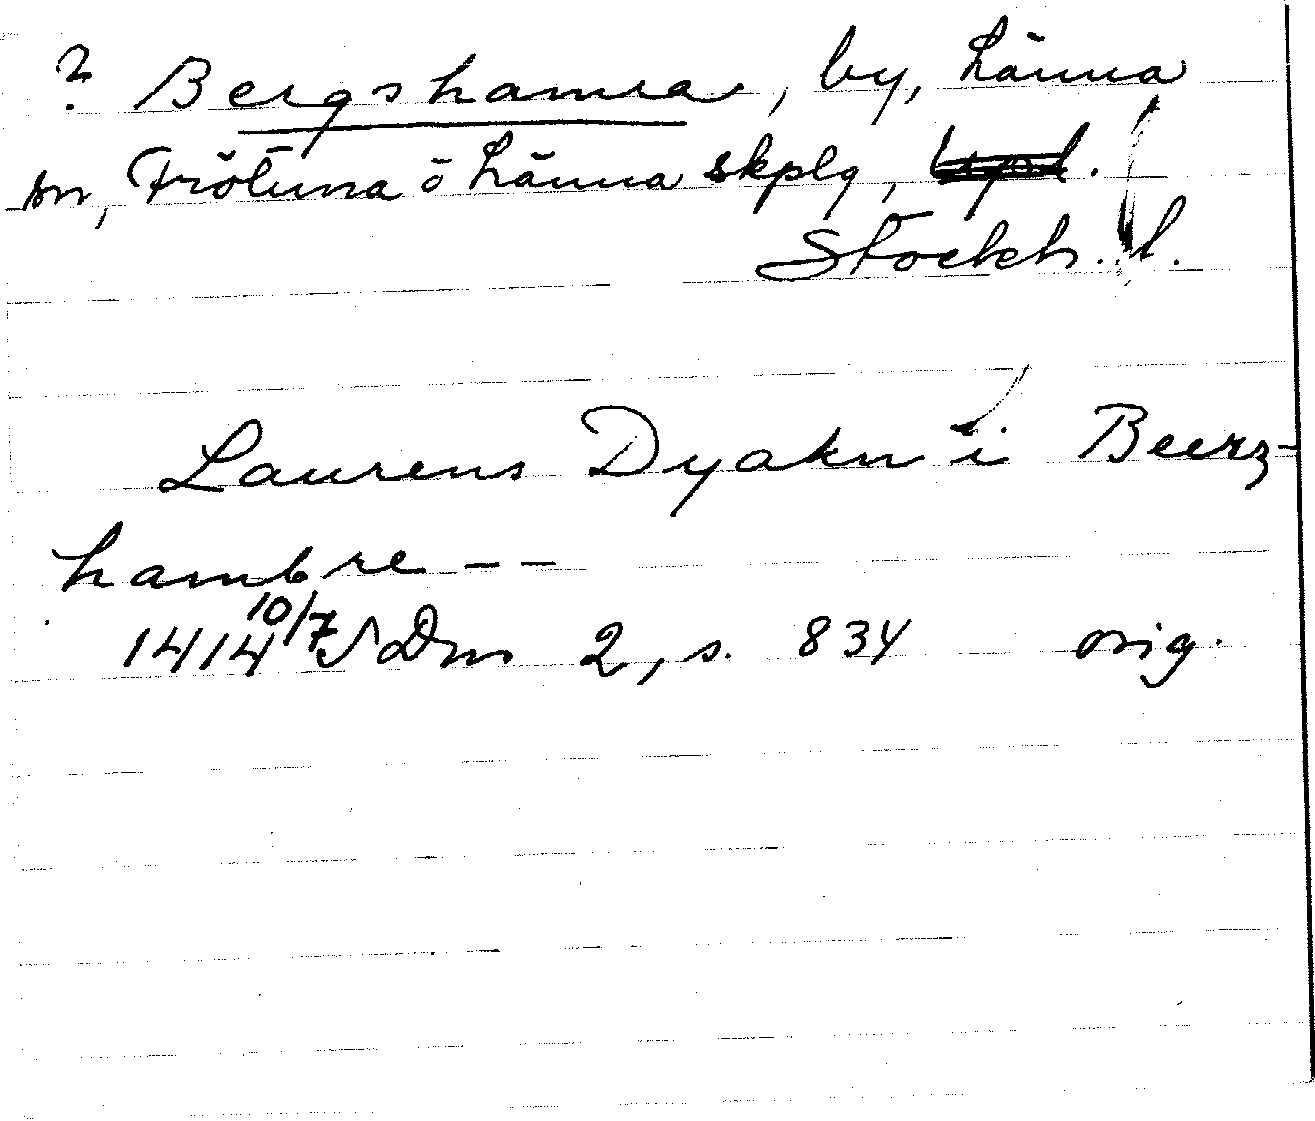 ? Bergshamra, by, Länna
sn, Frötuna o Länna skplg, Upl.
Stockh. l.
Laurens Dyakn i Beerz-
hambre --
1414 10/7 SDns 2, s. 834 orig.